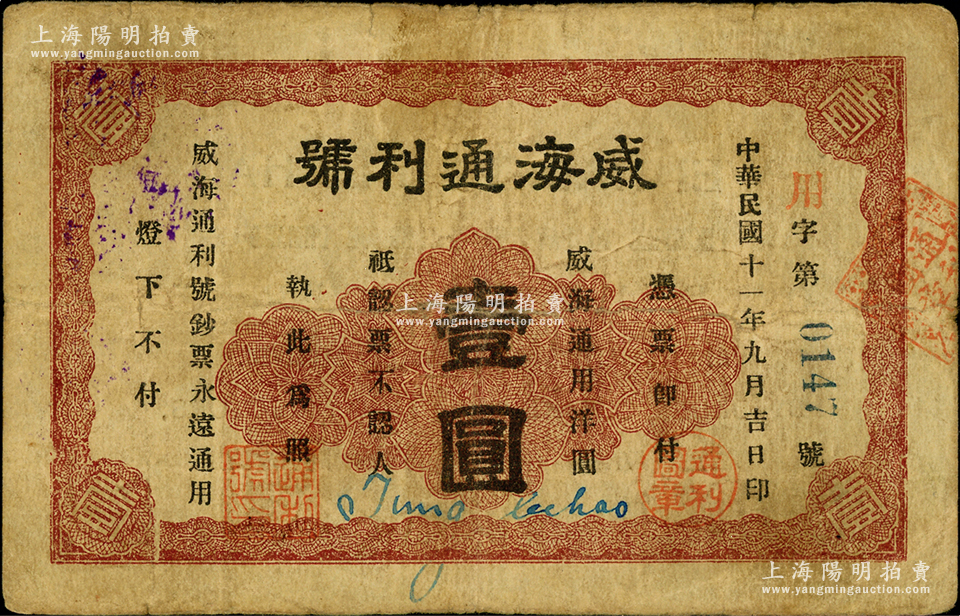 上海陽明拍賣
www.yangmingauction.com
威海通利號
用字第0147號
中華民國十一年九月吉日印
憑票即付
威海通用洋圓
壹圓
祗認票不認人
執此為照
威海通利號鈔票永遠通用
燈下不付
壹
壹
壹
壹
通利圖章
通利號印
Tung Lee hao
上海陽明拍賣
www.yangmingauction.com
上海陽明拍賣
www.yangmingauction.com